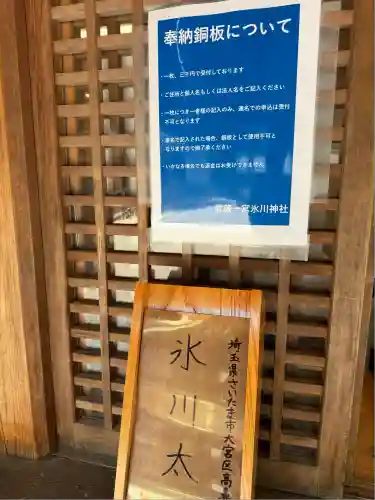 奉納銅板について
・一枚、三千円で受付しております
・ご住所と個人名もしくは法人名をご記入ください
・一枚につき一者様の記入のみ、連名での申込は受付
不可となります
・連名で記入された場合、銅板として使用不可と
なりますので御了承ください
・いかなる場合でも返金はお受けできません
武蔵一宮氷川神社
埼玉県さいたま市大宮区高
氷川太